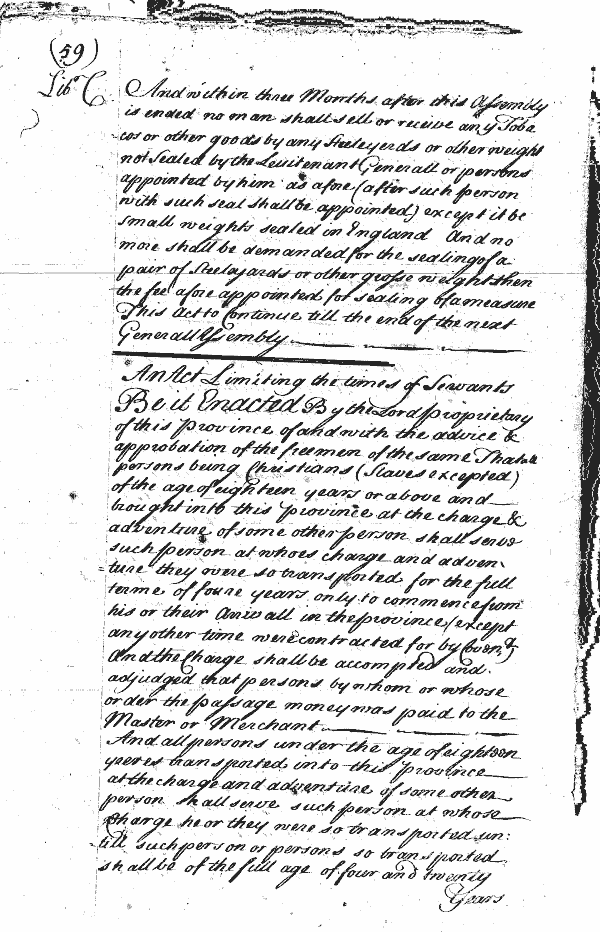 (59)
Lib C
And within three Months after this Assembly
is ended no man shall sell or receive any Toba
cos or other goods by any Steeleyards or other weight
not Sealed by the Leuitenant Generall or persons
appointed by him as afore (after such person
with such seal shall be appointed) except it be
small weights sealed in England And no
more shall be demanded for the sealing of a
pair of Steelayards or other grosse weight then
the fee afore appointed for sealing of a measure
This Act to Continue till the end of the next
Generall Assembly
An Act Limiting the times of Servants
Be it Enacted By the Lord Proprietary
of this Province of and with the advice &
approbation of the freemen of the same That all
persons being Christians (Slaves excepted)
of the age of eighteen years or above and
brought into this province at the charge &
adventure of some other person shall serve
such person at whoes charge and adven
ture they were so transported for the full
terme of foure years only to commence from
his or their Arivall in the province (except
any other time were contracted for by Coven.t)
And the Charge shall be accompted and
adjudged that persons by whom or whose
order the passage money was paid to the
Master or Merchant
And all persons under the age of eighteen
yeres transported into this Province
at the charge and adventure of some other
person shall serve such person at whose
Charge he or they were so transported un:
till such person or persons so transported
shall be of the full age of four and twenty
Years